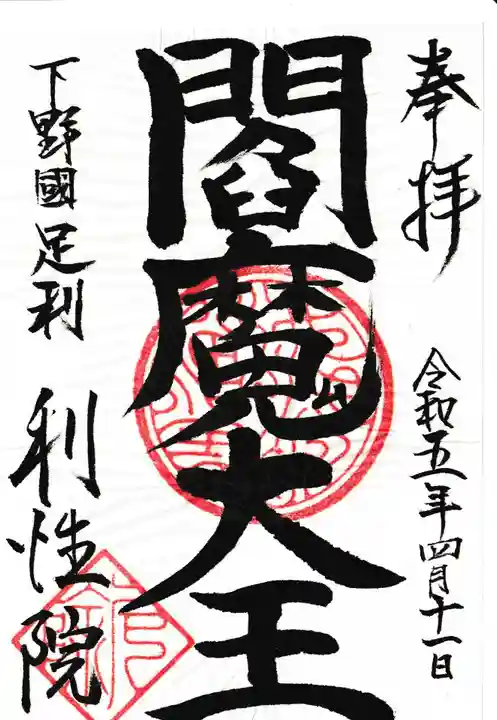 奉拝
令和五年四月十一日
閻魔大王
下野國足利
利性院